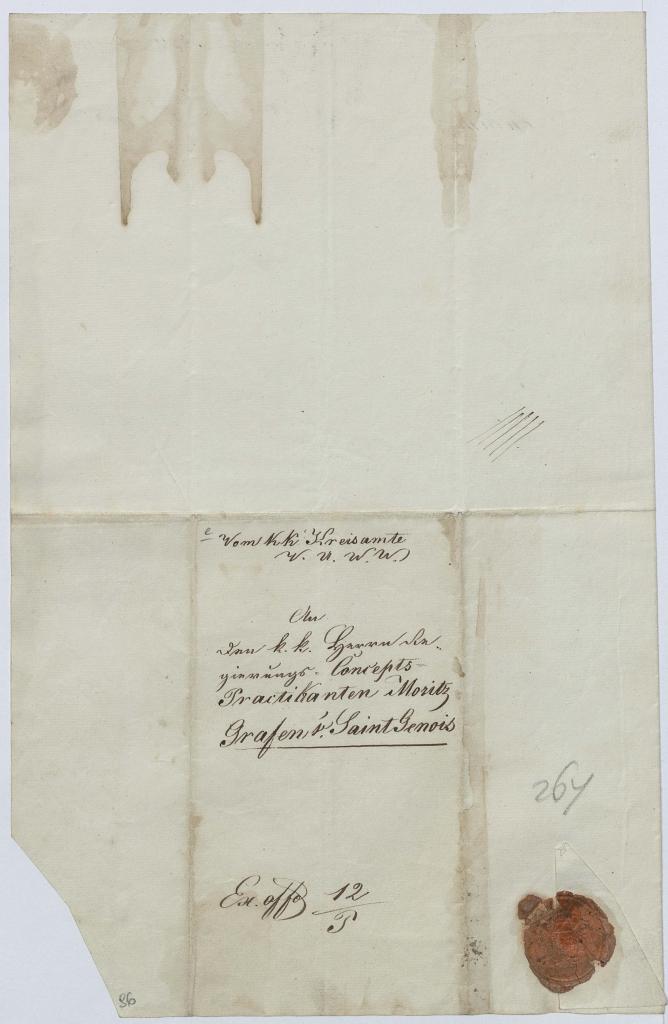 Vom k k Kreisamte
V. U. W. W.
An
den k. k. Herrn Re-
gierungs-Concepts-
Practikanten Moritz
Grafen v. Saint Genois
Ex. offo 12
264
86